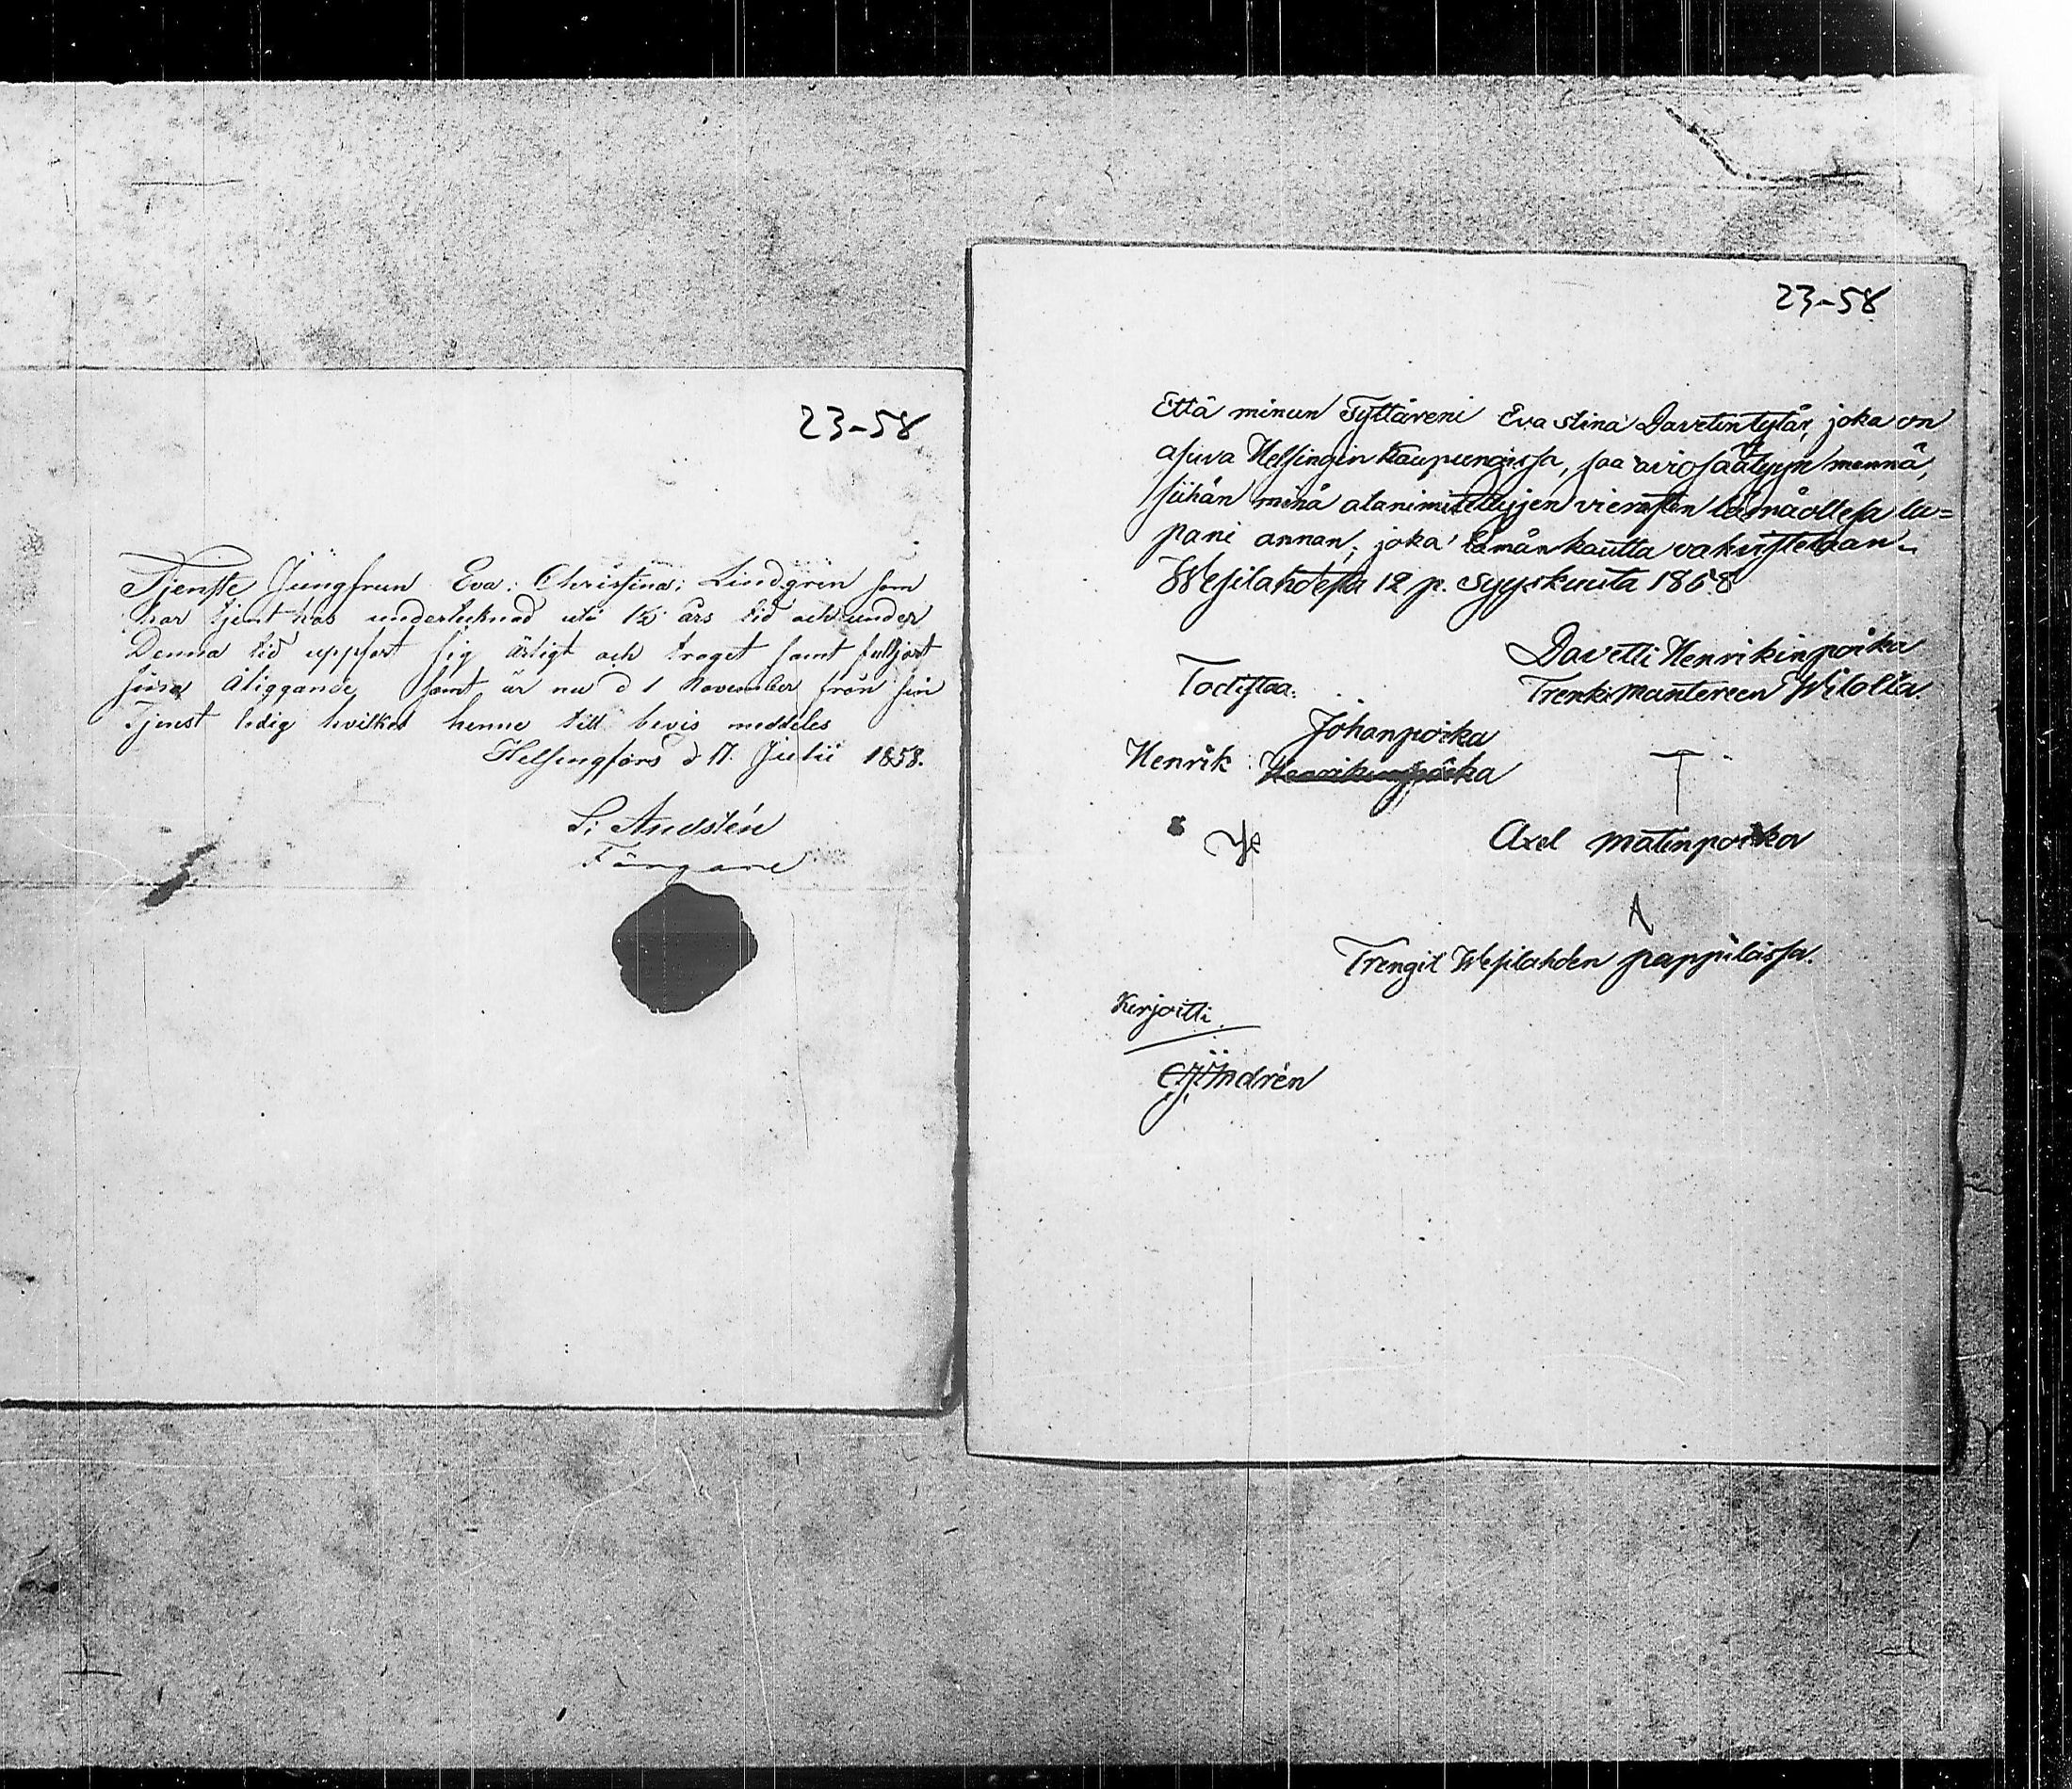 23-58
Tjenste Jungfrun Eva: Christina: Lindgren som
har tjent hos undertecknad uti 1½ års tid och under
Denna tid uppfört sig ärligt och troget samt fullgjort
sina åliggande samt är nu d 1 November från sin
Tjenst ledig hvilket henne till bevis meddeles
Helsingfors d 17. Julii 1858.
S: Andstén
Färgare
23-58
Että minun Tyttäreni Eva Stina Davetintytär, joka on
asuva Helsingin Kaupungissa, saa aviosäätyyn mennä,
siihän minä alanimitettyjen vierasten läsnäollesa lu=
pani annan; joka tämän kautta vakuutetaan.
Wesilahdesta 12 p. Syyskuuta 1858
Davetti Henrikinpoika
Trenki Mantereen Wilolta
Todistaa:
Johanpoika
Henrik Henrikinpoika
Axel Matinpoika
Trengit Wesilahden pappilassa.
Kirjoitti
Andrén